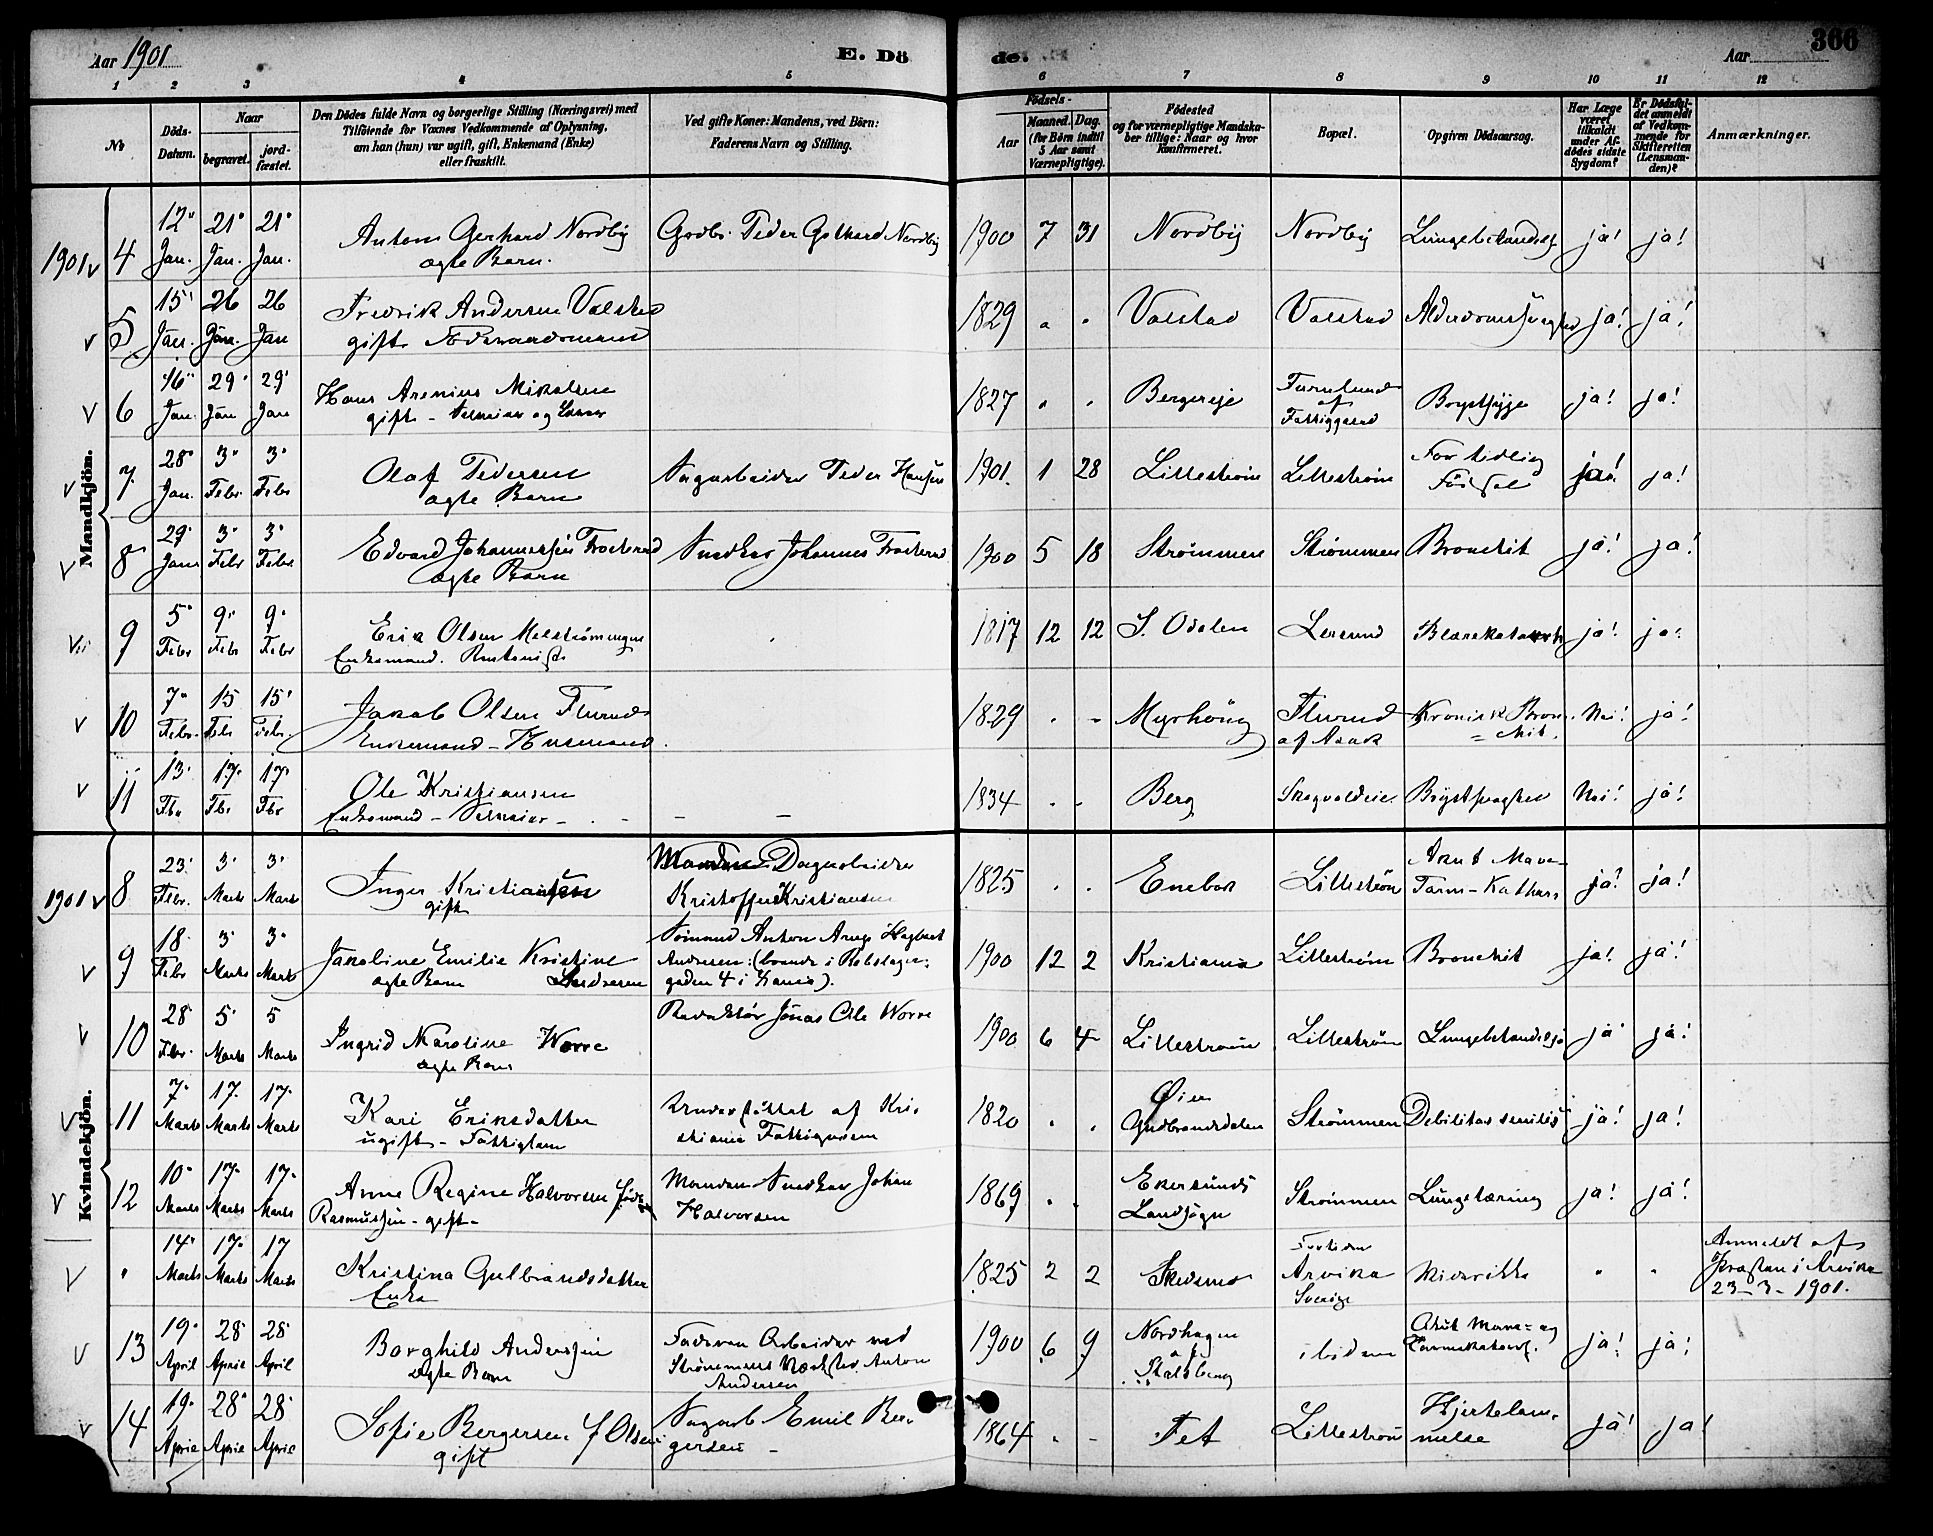 Aar 1901 E. Dö de. Aar 366
1 2 3 4 5 6 7 8 9 10 11 12
No Döds-Datum. Naar begravet. jord-fæstet. Den Dödes fulde Navn og borgerlige Stilling (Næringsvei) med Tilföiende for Voxnes Vedkommende af Oplysning, om han (hun) var ugift, gift, Enkemand (Enke) eller fraskilt. Ved gifte Koner: Mandens, ved Börn: Faderens Navn og Stilling. Födsels- Aar Maaned. Dag. (for Börn indtil 5 Aar samt Værnepligtige). Födested og for værnepligtige Mandska-ber tillige: Naar og hvor konfirmeret. Bopæl. Opgiven Dödsaarsag. Har Læge været tilkaldt under Af-dödes sidste Sygdom? Er Dödsfal-det anmeldt af Vedkom-mende for Skifteretten (Lensman-den)? Anmærkninger.
Mandkjön.
1901 v 4 12 Jan. 21 Jan. 21 Jan. Anton Gerhard Nordby ægte Barn. Gbdbr. Peder Gothard Nordby 1900 7 31 Nordby Nordby Lungebetændelse ja! ja!
v 5 15 Jan. 26 Jan. 26 Jan Fredrik Andersen Valstad gift Föderaadsmand 1829 " " Valstad Valstad Alderdomssvaghed ja! ja!
v 6 16 Jan. 29 Jan 29 Jan Hans Arenius Mikalsen gift - 1827 " " Bergereje Farmlund af Fattiggaard Brystsyge ja! ja!
v 7 28 Jan. 3 Febr 3 Febr Olaf Pedersen ægte Barn Sagarbeider Peder Hansen 1901. 1 28 Lillestrøm Lillestrøm For tidlig Födsel ja! ja!
v 8 29 Jan. 3 Febr 3 Febr Edvard Johannessen ægte Barn Snedker Johannes 1900 5 18 Strømmen Strømmen Bronchit ja! ja!
v 9 5 Febr 9 Febr 9 Febr Erik Olsen Enkemand. 1817 12 12 S. Odalen Blærekatarrh ja! ja
v 10 7 Febr. 15 Febr 15 Febr. Jakob Olsen Flurud Enkemand - Husmand. 1829 " " Myrhaug Flurud af Asak Kronisk Bron=chit. Nei! ja!
v 11 13 Fbr 17 Fbr 17 Fbr Ole Kristiansen Enkemand - 1834 " " Berg Skogvoldeie. Brystsvaghed Nei! ja!
Kvindekjön.
1901 v 8 23 Febr. 3 Marts 3 Marts Inger Kristiansen gift Manden: Dagarbeider Kristoffer Kristiansen 1825 . . Enebak Lillestrøm Akut Mave-Tarm-Katharr ja! ja!
v 9 18 Febr 3 Marts 3 Marts Jakobine Emilie Kristine Andresen ægte Barn Sömand Anton Andresen: gaden 4 i Krania). 1900 12 2 Kristiania Lillestrøm Bronchit ja! ja!
v 10 28 Febr. 5 Marts 5 Marts Ingrid Karoline Worre ægte Barn Redaktör Jonas Ole Worre 1900 6 4 Lillestrøm Lillestrøm Lungebetændelse ja ja!
v 11 7 Marts 17 Marts 17 Marts Kari Eriksdatter ugift - Fattiglem Understöttet af Kristiania Fattigvæsen 1820 . . Øier Gudbrandsdalen Strømmen Debilitas senilis ja! ja!
v 12 10 Marts 17 Marts 17 Marts Anne Regine Halvorsen född Rasmussen - gift - Manden Snedker Johan Halvorsen 1869 . . Ekersunds Landsogn Strømmen Lungetæring ja! ja!
v " 14 Marts 17 Marts 17 Marts Kristina Gulbrandsdatter Enke 1825 2 2 Skedsmo Arvika Sverige " " Anmeldt af Presten i Arvika 23-3-1901.
v 13 19 April 28 April 28 April Borghild Andersen ægte Barn Faderen Arbeider ved Strømmens Værksted Anton Andersen 1900 6 9 Nordhagen af Stalsberg ibidem Akut Mave= og Tarmkatarrh. ja! ja!
v 14 19 April 28 April 28 April Sofie Bergersen f Olsen gift Sagarb Emil Ber-gersen - 1864 " - Fet Lillestrøm Hjertelam-melse ja! ja!